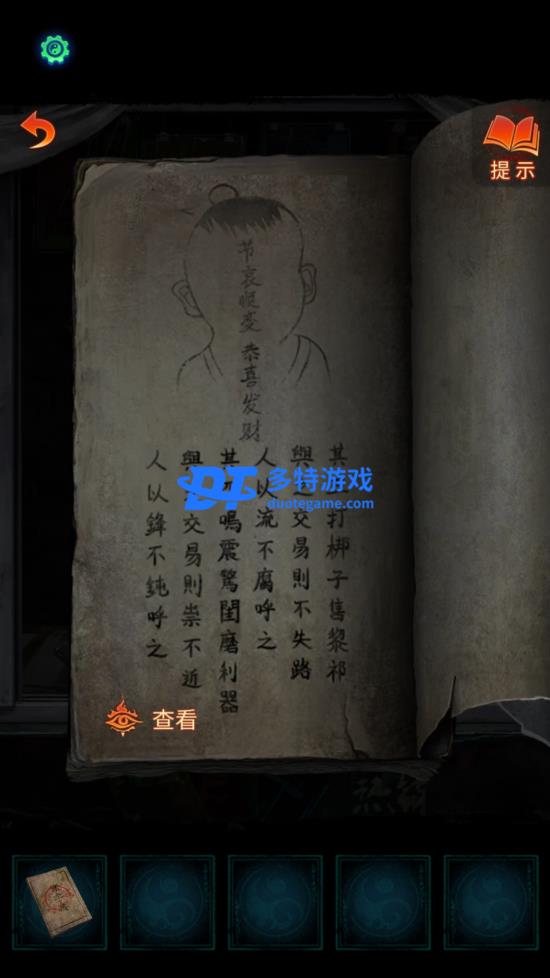 提示
节哀顺变 恭喜发财
打梆子售黎祁
與 交易則不失路
人以流不腐呼之
鳴震驚閨磨利器
與 交易則祟不近
人以鋒不鈍呼之
多特游戏
duotegame.com
查看